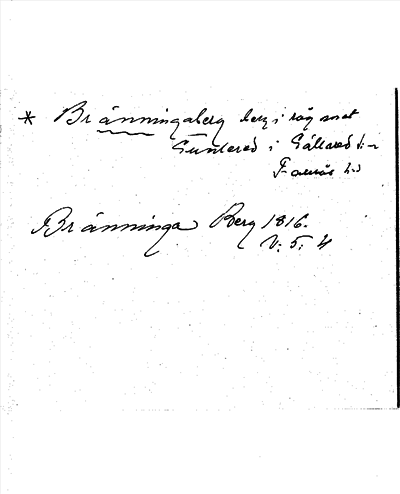 * Bränningaberg berg i råg mot
Gunnered i Gällared sn
Faurås hd
Bränninga Berg 1816.
V: 5: 4